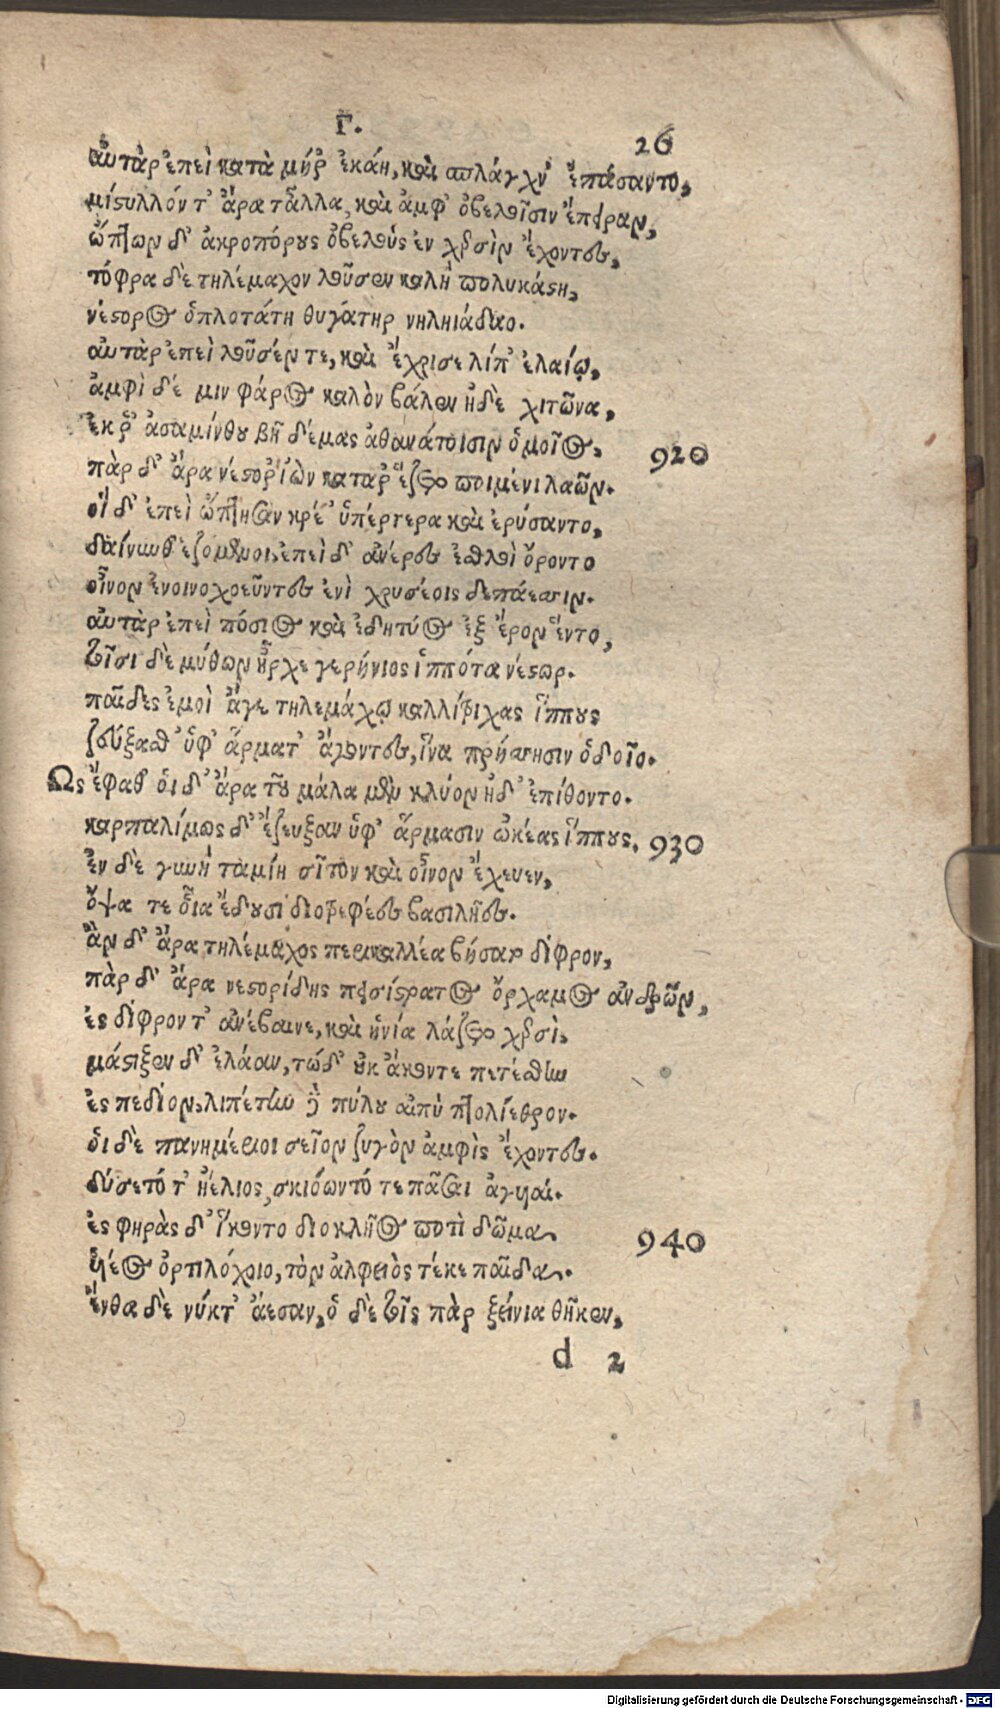 Γ.
26
αὐτὰρ ἐπεὶ κατὰ μῆρ' ἐκάη, καὶ σπλάγχν' ἐπάσαντο,
μίστυλλόν τ' ἄρα τἆλλα, καὶ ἀμφ' ὀβελοῖσιν ἔπειραν,
ὤπτων δ' ἀκροπόρους ὀβελοὺς ἐν χερσὶν ἔχοντες,
τόφρα δὲ τηλέμαχον λοῦσεν καλὴ πολυκάστη,
νέστορος ὁπλοτάτη θυγάτηρ νηληιάδαο.
αὐτὰρ ἐπεὶ λοῦσέν τε, καὶ ἔχρισε λίπ' ἐλαίῳ,
ἀμφὶ δέ μιν φάρος καλὸν βάλεν ἠδὲ χιτῶνα,
ἔκ ῥ' ἀσαμίνθου βῆ δέμας ἀθανάτοισιν ὁμοῖος,
920
πὰρ δ' ἄρα νέστορ' ἰὼν κατάρ' ἕζετο ποιμένι λαῶν.
οἱ δ' ἐπεὶ ὤπτησαν κρέ' ὑπέρτερα καὶ ἐρύσαντο,
δαίνυνθ' ἑζόμενοι, ἐπεὶ δ' ἀνέρες ἐσθλοὶ ὄροντο
οἶνον ἐνοινοχοεῦντες ἐνὶ χρυσέοις δεπάεσσιν.
αὐτὰρ ἐπεὶ πόσιος καὶ ἐδητύος ἐξ ἔρον ἕντο,
τοῖσι δὲ μύθων ἦρχε γερήνιος ἱππότα νέστωρ.
παῖδες ἐμοὶ ἄγε τηλεμάχῳ καλλίτριχας ἵππους
ζεύξασθ' ὑφ' ἅρματ' ἄγοντες, ἵνα πρήσσησιν ὁδοῖο.
Ως ἔφαθ' οἱ δ' ἄρα τοῦ μάλα μὲν κλύον ἠδ' ἐπίθοντο.
καρπαλίμως δ' ἔζευξαν ὑφ' ἅρμασιν ὠκέας ἵππους,
930
ἐν δὲ γυνὴ ταμίη σῖτον καὶ οἶνον ἔχευεν,
ὄψα τε οἷα ἔδουσι διοτρεφέες βασιλῆες.
ἂν δ' ἄρα τηλέμαχος περικαλλέα βήσατο δίφρον,
πὰρ δ' ἄρα νεστορίδης πεισίστρατος ὄρχαμος ἀνδρῶν,
ἐς δίφρον τ' ἀνέβαινε, καὶ ἡνία λάζετο χερσὶ,
μάστιξεν δ' ἐλάαν, τώδ' οὐκ ἄκοντε πετέσθην
ἐς πεδίον, λιπέτην δὲ πύλου αἰπὺ πτολίεθρον.
οἱ δὲ πανημέριοι σεῖον ζυγὸν ἀμφὶς ἔχοντες.
δύσετό τ' ἠέλιος, σκιόωντό τε πᾶσαι ἀγυιαί.
ἐς φηρὰς δ' ἵκοντο διοκλῆος ποτὶ δῶμα
940
υἱέος ὀρτιλόχοιο, τὸν ἀλφειὸς τέκε παῖδα.
ἔνθα δὲ νύκτ' ἄεσαν, ὁ δὲ τοῖς πὰρ ξείνια θῆκεν,
d 2
Digitalisierung gefördert durch die Deutsche Forschungsgemeinschaft - DFG